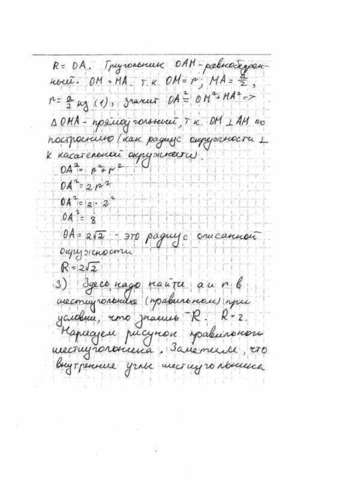 R = OA. Треугольник OAM - равнобедрен-
ный. OM = MA. т.к OM = r, MA = a/2,
r = a/2 из (1), значит OA² = OM² + MA² →
△ OMA - прямоугольный, т.к. OM ⊥ AM по
построению (как радиус окружности ⊥
к касательной окружности).
OA² = r² + r²
OA² = 2r²
OA² = 2 · 2²
OA² = 8
OA = 2√2 - это радиус описанной
окружности
R = 2√2
3) Здесь надо найти a и r в
шестиугольнике (правильном) при
условии, что знаем - R. R = 2.
Нарисуем рисунок правильного
шестиугольника. Заметим, что
внутренние углы шестиугольника